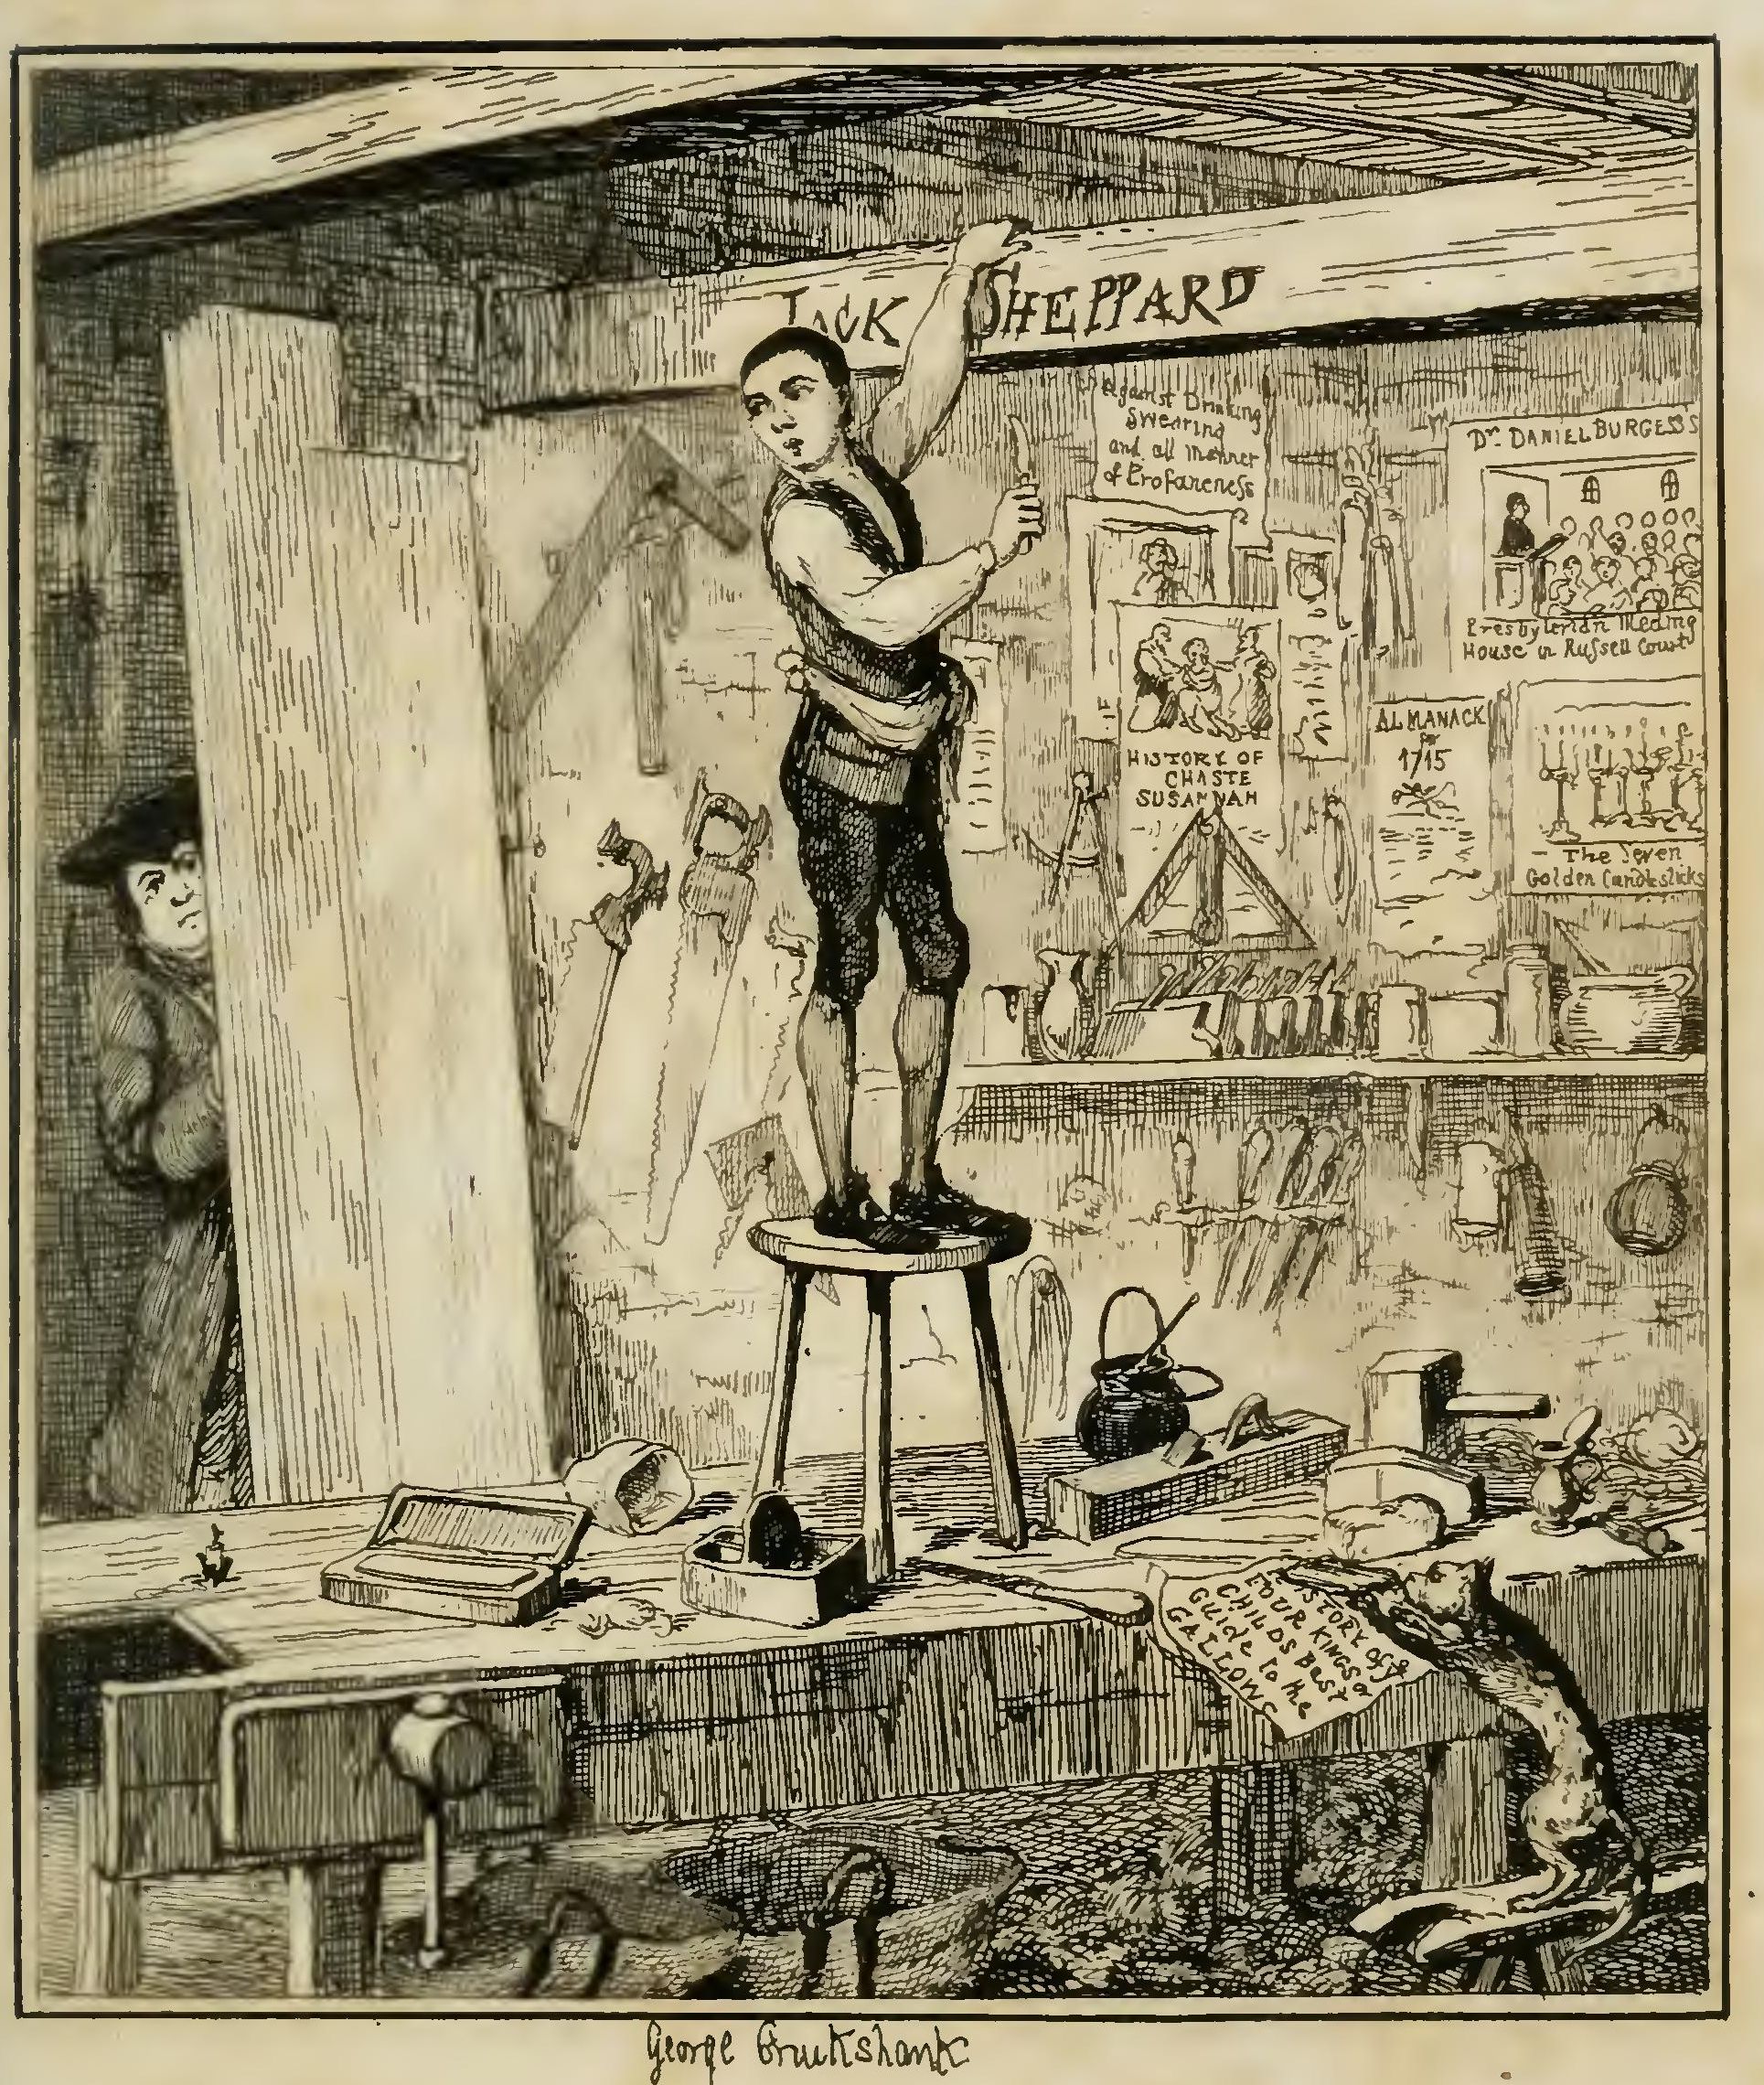 JACK SHEPPARD
Against Drinking
Swearing
and all manner
of Profaneness
Dr. DANIEL BURGESS'S
Presbyterian Meeting
House in Russell Court
HISTORY OF
CHASTE
SUSANNAH
ALMANACK
for
1715
The Seven
Golden Candlesticks
HISTORY OF Ye
FOUR KINGS or
CHILDS BEST
GUIDE to the
GALLOWS
George Cruikshank